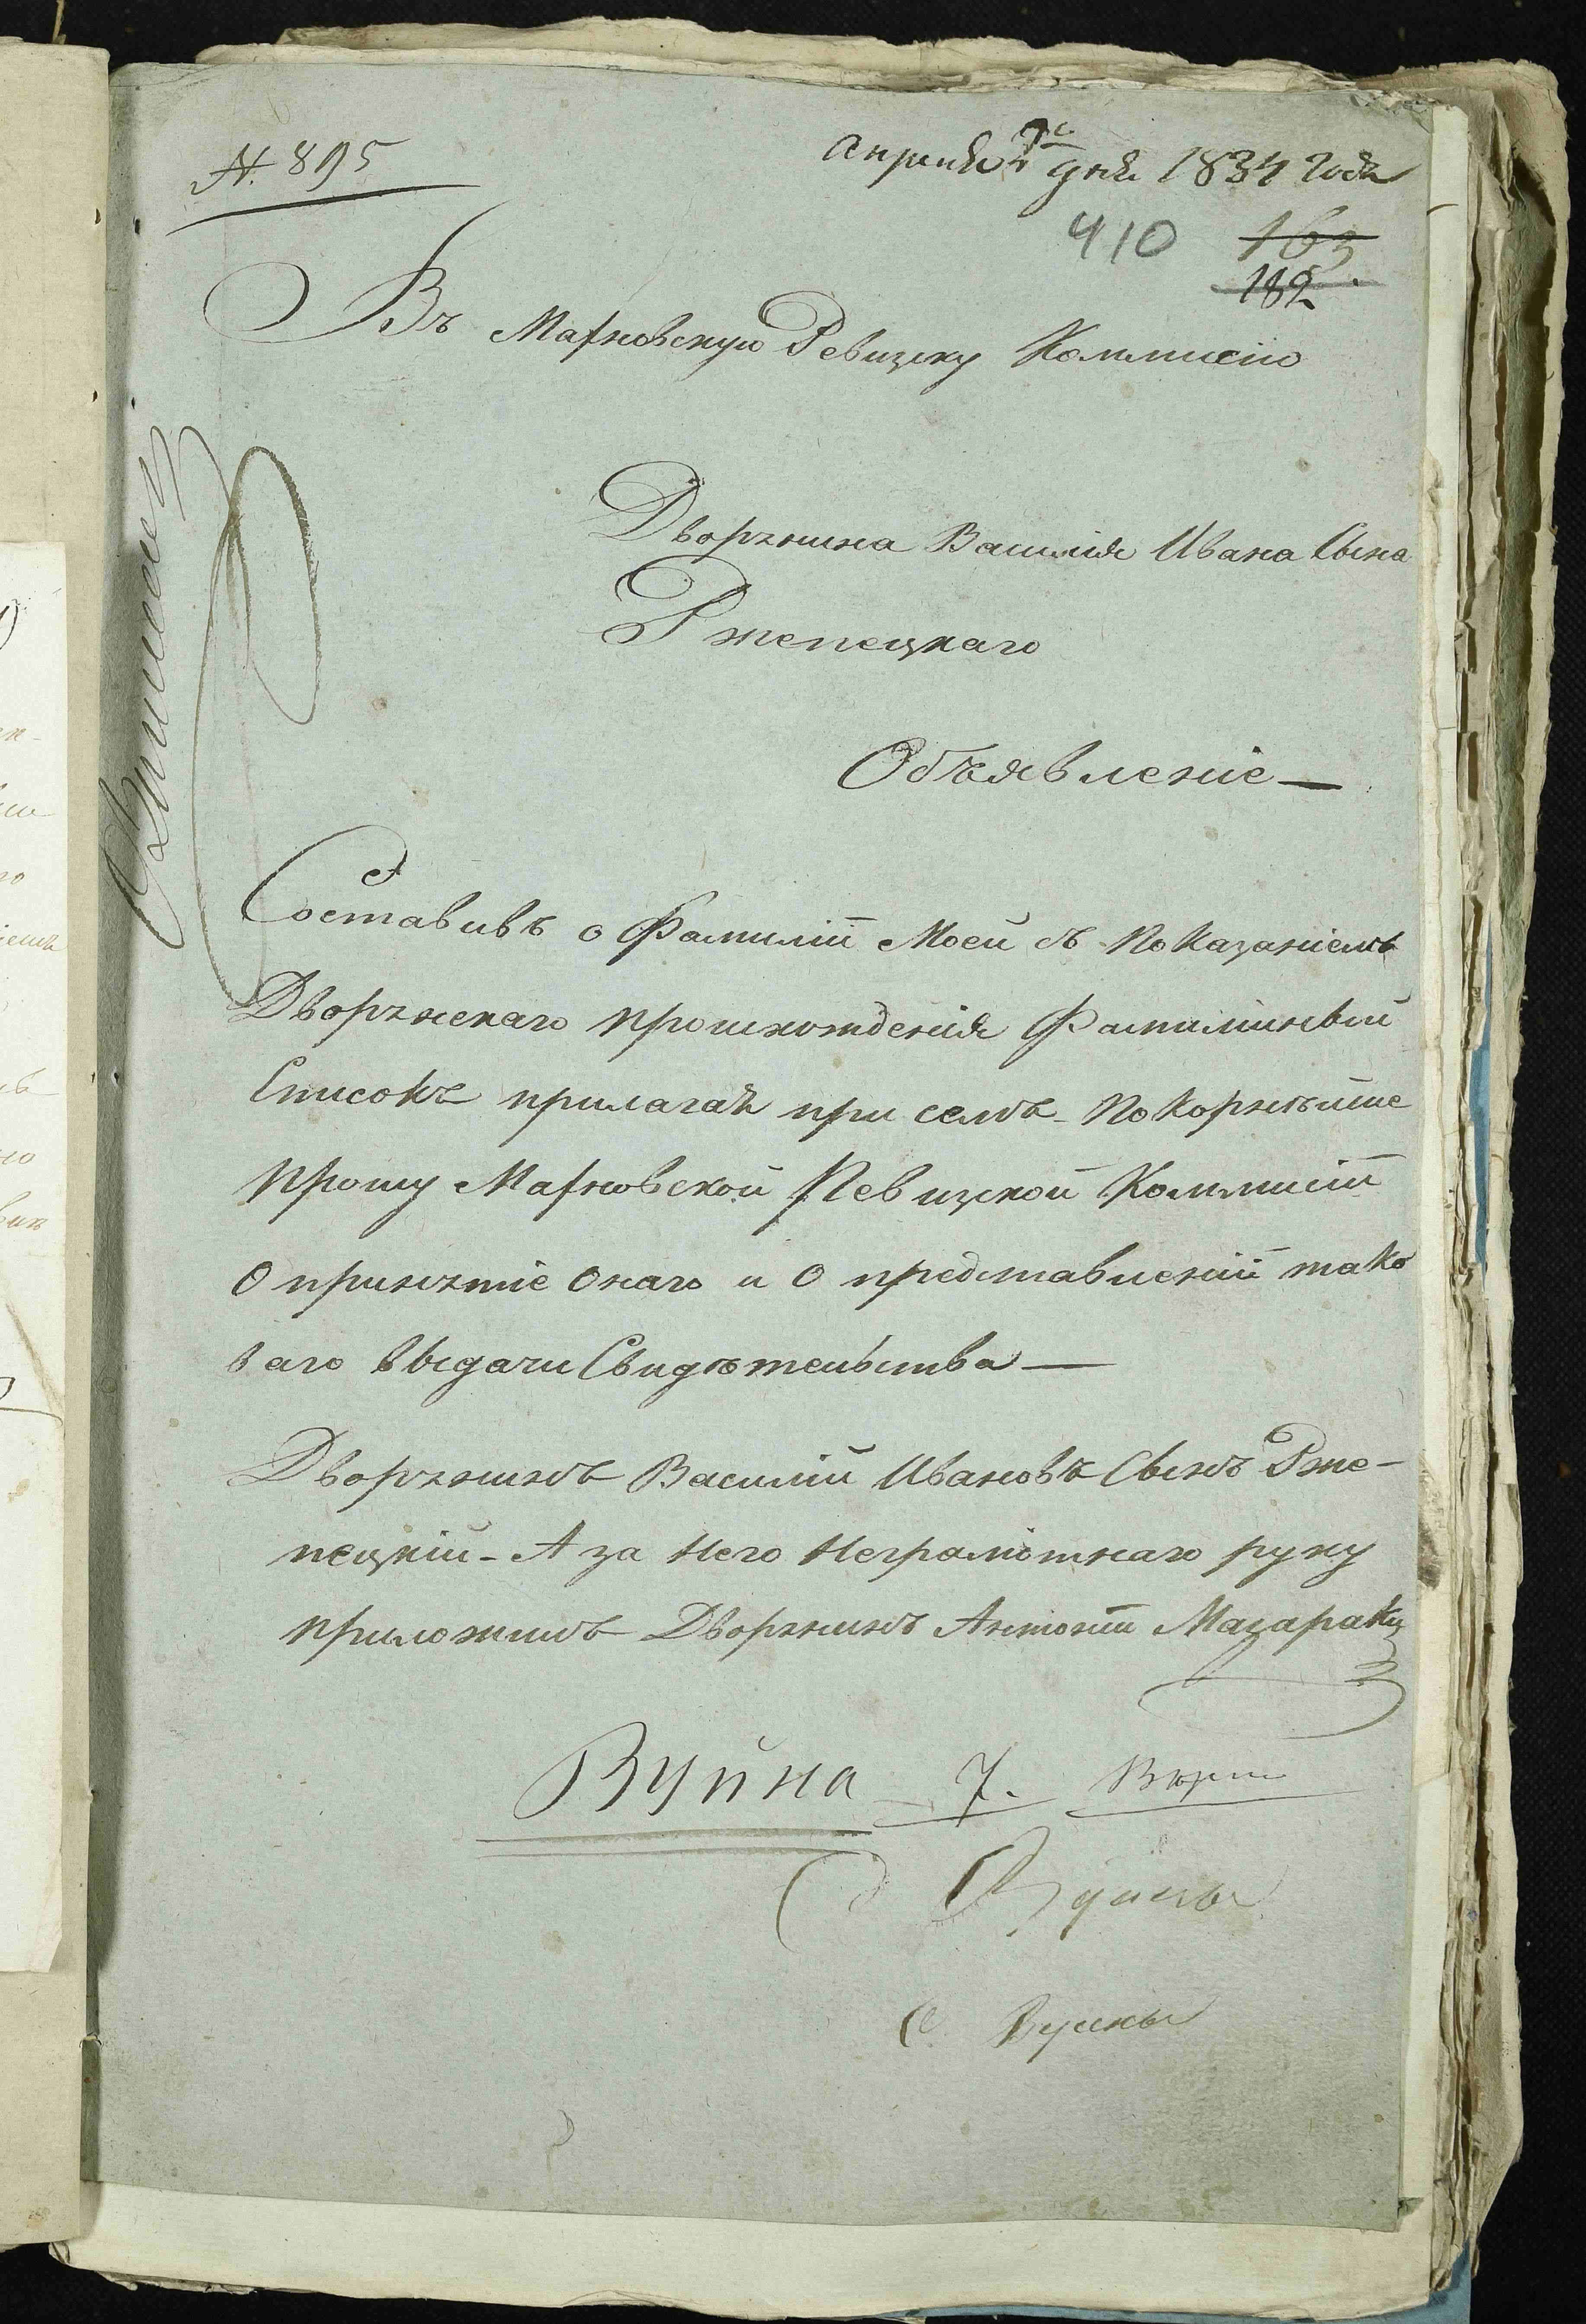 N. 895
Апреля 7го дня 1834 года
410 163
182
Въ Махновскую Ревизску Коммисію
Дворянина Василія Ивана Сына
Ржепецкаго
Объявленіе —
Составивъ о Фамиліи Моей съ показаніемъ
Дворянскаго происхожденія Фамилійный
Списокъ прилагая при семъ покорнѣйше
прошу Махновской Ревизской Коммисіи
О принятіе Онаго и О представленіи тако
ваго выдачи Свидѣтельства —
Дворянинъ Василій Ивановъ Сынъ Рже-
пецкій - А за Него Неграмотнаго руку
приложилъ Дворянинъ Антоній
Вуйна 7.